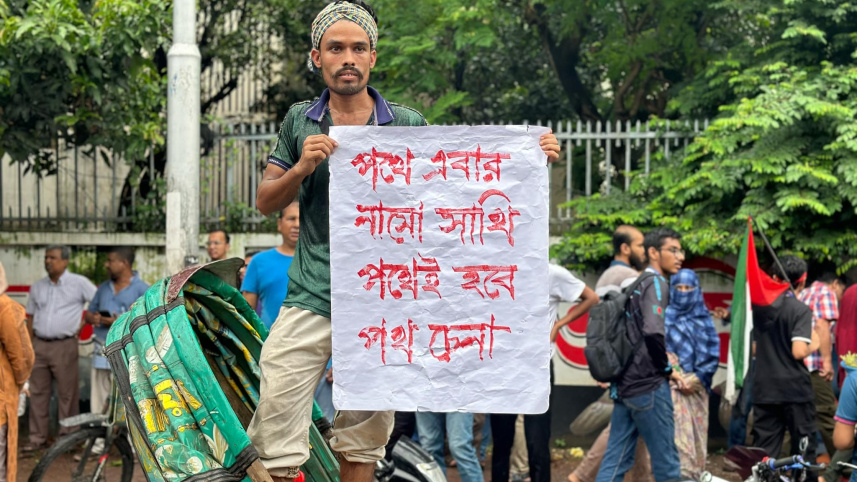 পথে এবার
নামো সাথি
পথেই হবে
পথ চেনা